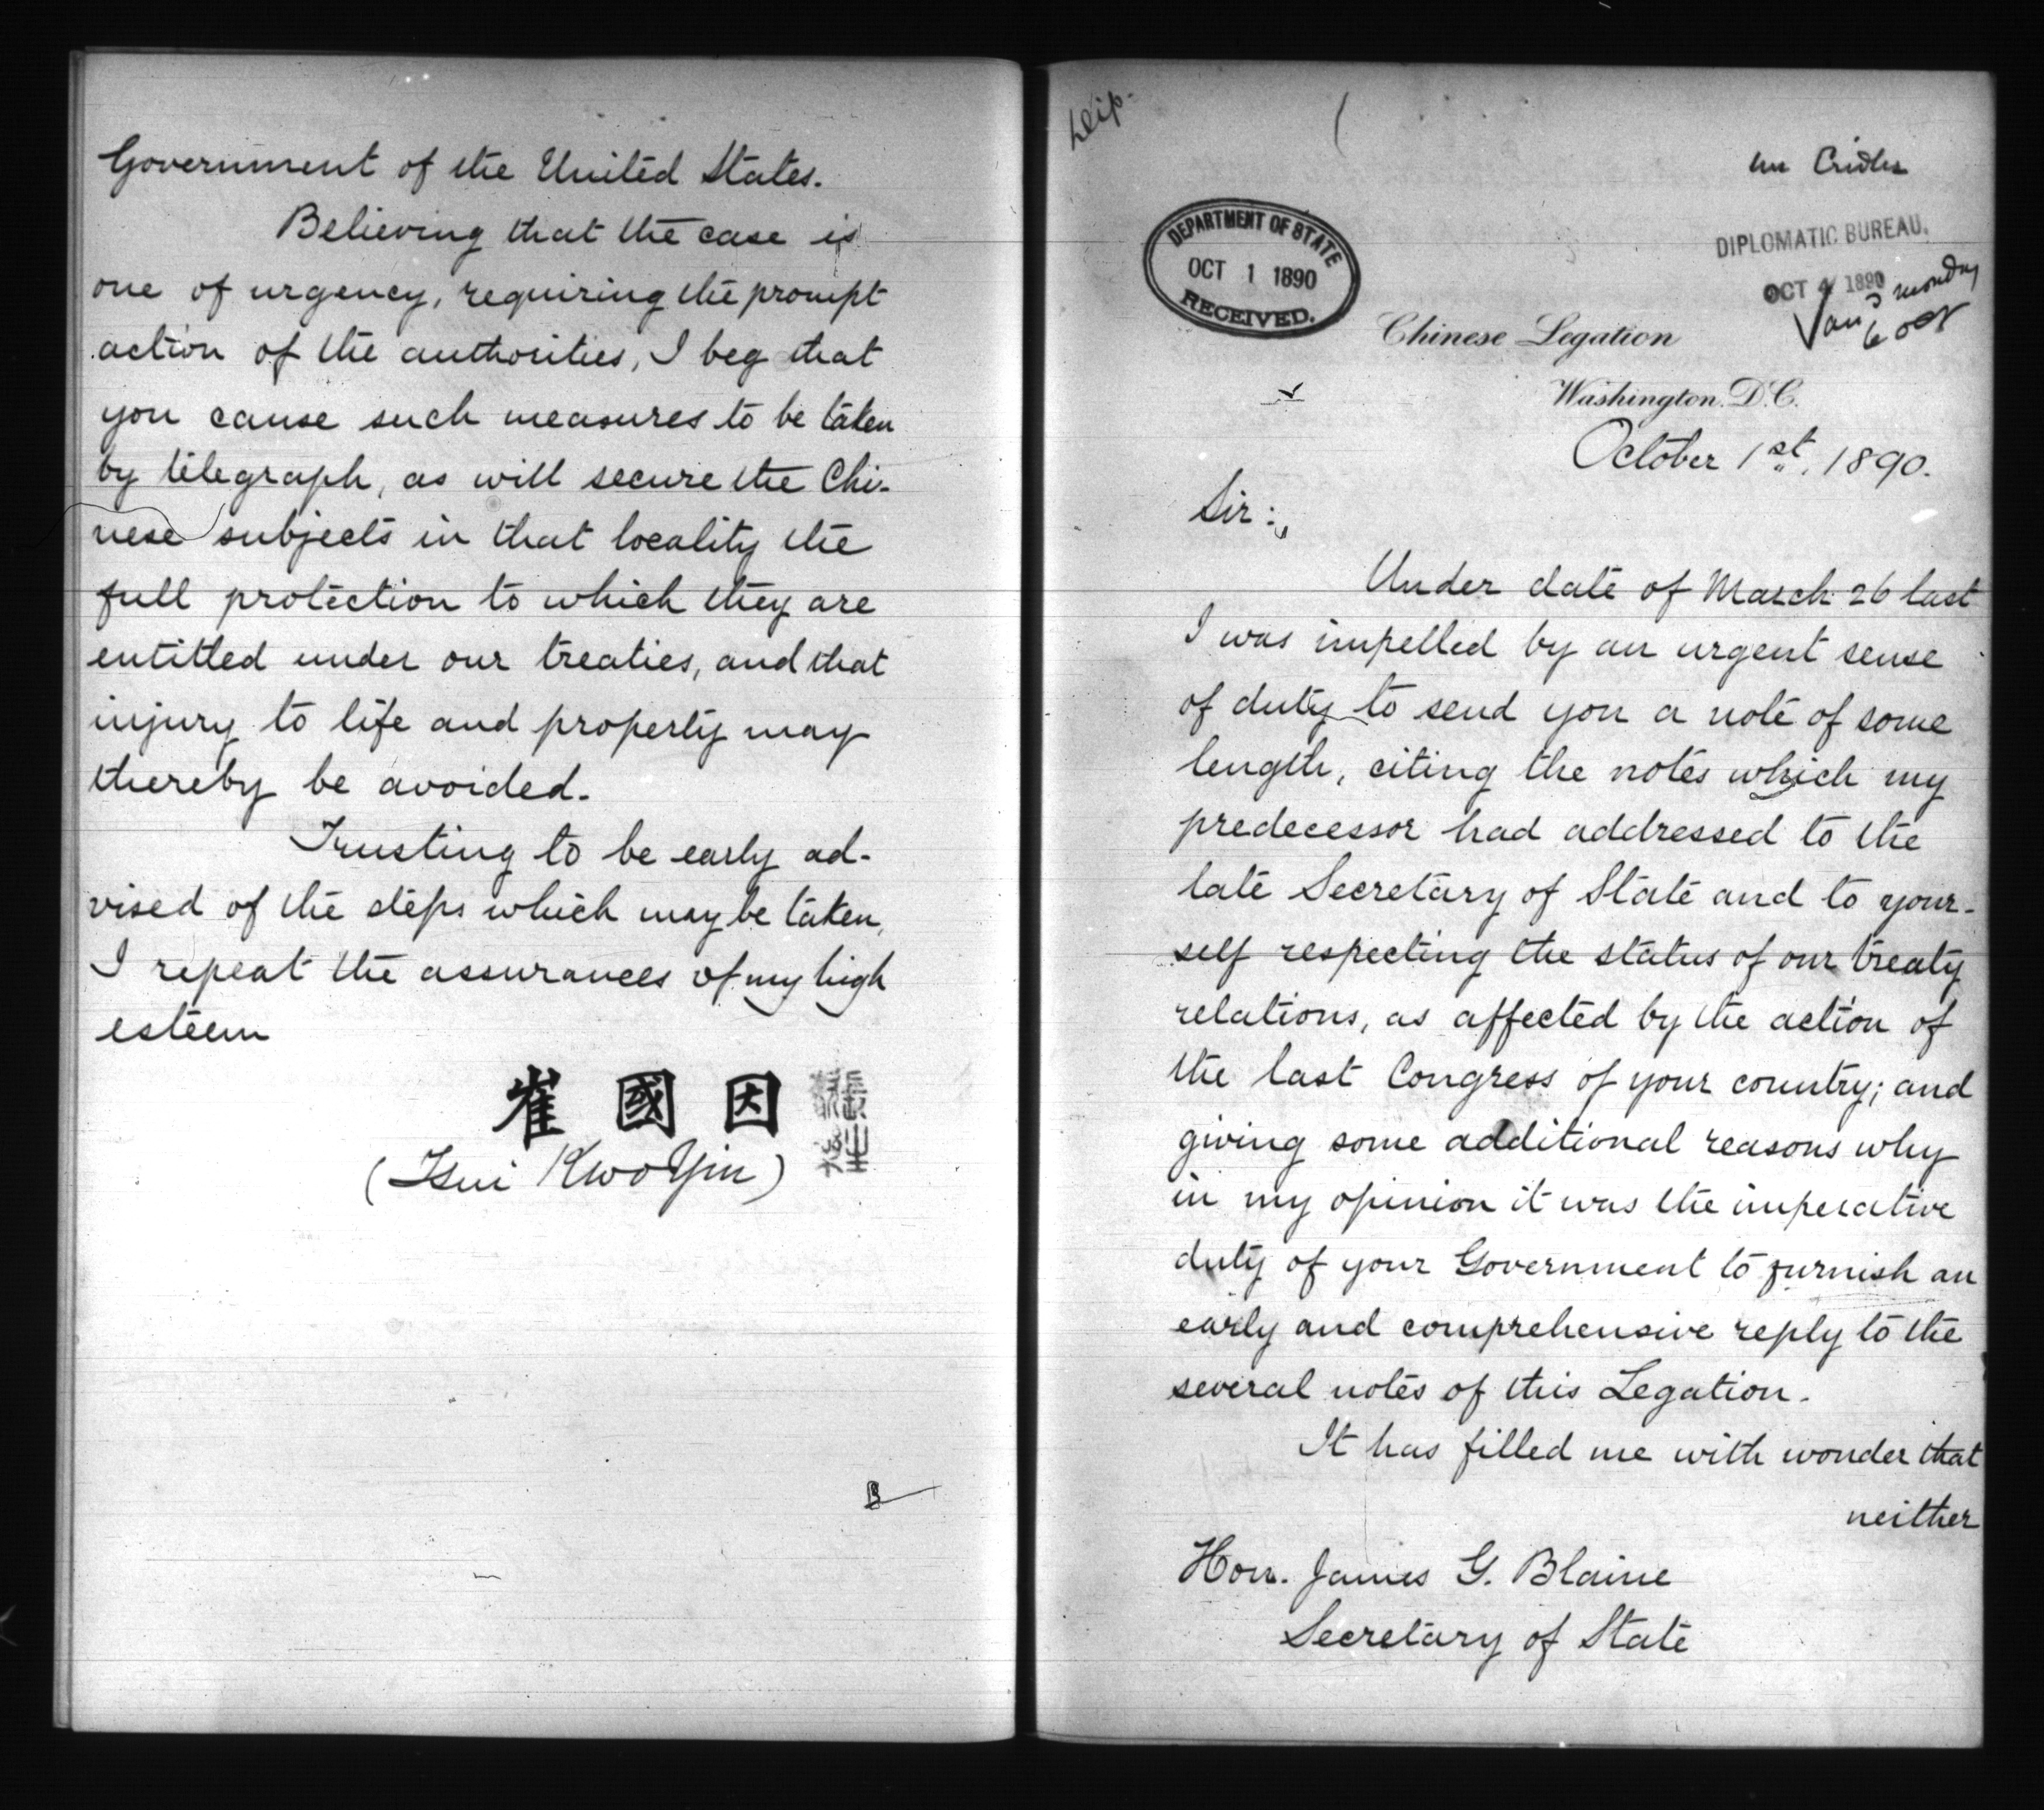 Government of the United States.
Believing that the case is
one of urgency, requiring the prompt
action of the authorities, I beg that
you cause such measures to be taken
by telegraph, as will secure the Chi-
nese subjects in that locality the
full protection to which they are
entitled under our treaties, and that
injury to life and property may
thereby be avoided.
Trusting to be early ad-
vised of the steps which may be taken,
I repeat the assurances of my high
esteem
崔 國 因
(Tsui Kwo Yin)
B
Dip.
Mr Cridler
DEPARTMENT OF STATE
OCT 1 1890
RECEIVED.
DIPLOMATIC BUREAU.
OCT 1890
monday
6 Oct
Chinese Legation
Washington. D.C.
October 1st, 1890.
Sir:
Under date of March 26 last
I was impelled by an urgent sense
of duty to send you a note of some
length, citing the notes which my
predecessor had addressed to the
late Secretary of State and to your-
self respecting the status of our treaty
relations, as affected by the action of
the last Congress of your country; and
giving some additional reasons why
in my opinion it was the imperative
duty of your Government to furnish an
early and comprehensive reply to the
several notes of this Legation.
It has filled me with wonder that
neither
Hon. James G. Blaine
Secretary of State